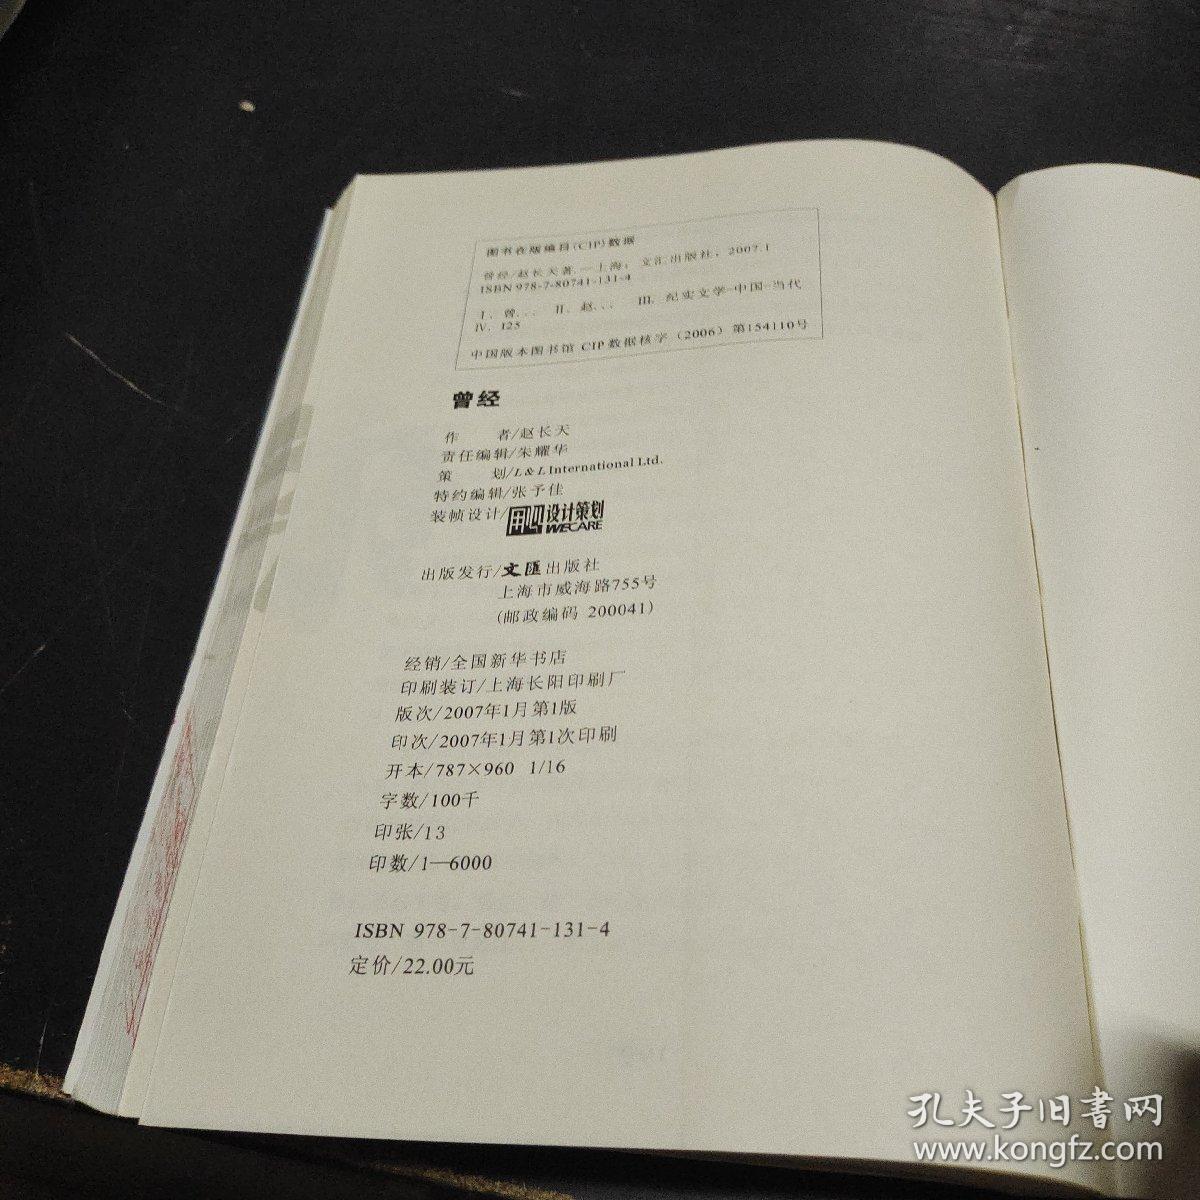 图书在版编目(CIP)数据
曾经/赵长天著.—上海:文汇出版社,2007.1
ISBN 978-7-80741-131-4
Ⅰ.曾... Ⅱ.赵... Ⅲ.纪实文学-中国-当代
Ⅳ.I25
中国版本图书馆 CIP 数据核字(2006)第154110号
曾经
作 者/赵长天
责任编辑/朱耀华
策 划/L&L International Ltd.
特约编辑/张予佳
装帧设计/用心设计策划 WECARE
出版发行/文匯出版社
上海市威海路755号
(邮政编码 200041)
经销/全国新华书店
印刷装订/上海长阳印刷厂
版次/2007年1月第1版
印次/2007年1月第1次印刷
开本/787×960 1/16
字数/100千
印张/13
印数/1—6000
ISBN 978-7-80741-131-4
定价/22.00元
孔夫子旧书网
www.kongfz.com